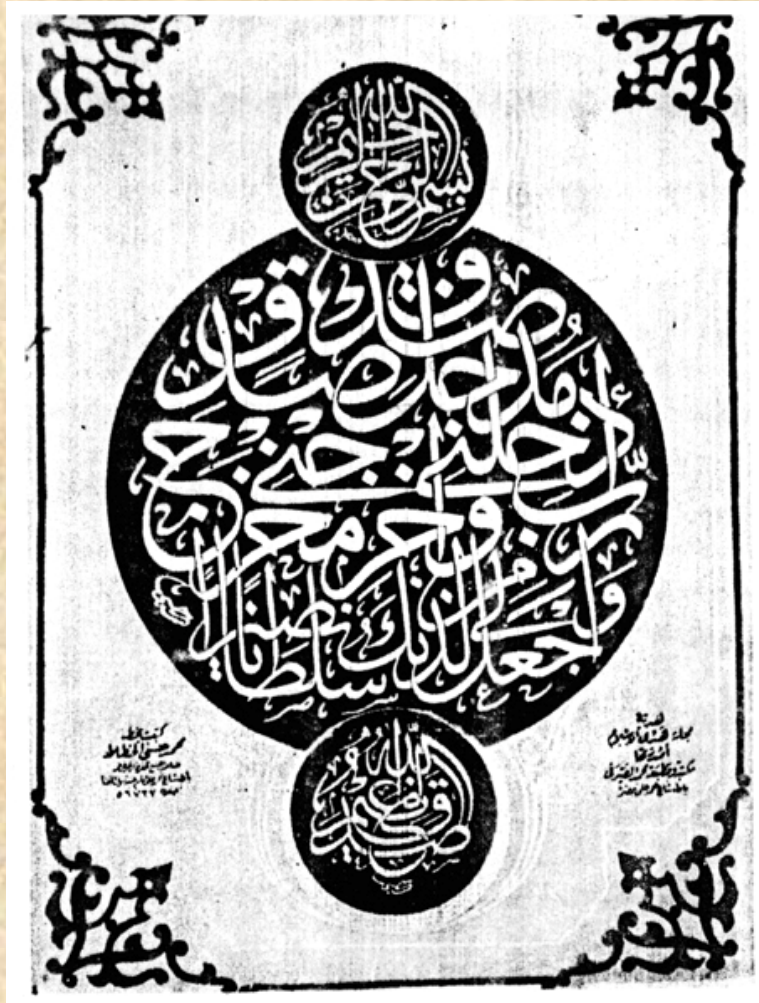 بسم الله الرحمن الرحيم
رب أدخلني مدخل صدق وأخرجني مخرج صدق واجعل لي من لدنك سلطانا نصيرا
صدق الله العظيم
هدية
كتبه الخطاط
محمد حسني الخطاط